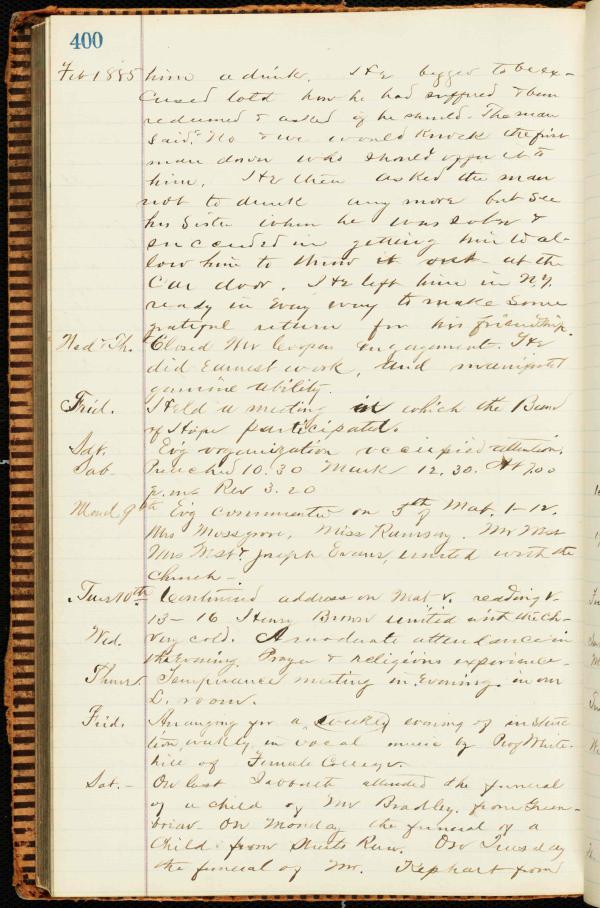 400
Feb 1885 him a drink. He begged to be ex-
cused told how he had suffered & been
redeemed & asked if he should. The man
said. No & we would knock the first
man down who should offer it to
him. He then asked the man
not to drink any more but see
his Sister when he was sober &
succeeded in getting him to al-
low him to throw it out at the
Car door. He left him in N.Y.
ready in Evry way to make some
grateful return for his friendship.
Wed & Th. Closed Mr Coopers engagement. He
did Earnest work, and manifested
genuine ability.
Frid. Held a meeting in which the Band
of Hope participated.
Sat. Evg organization occupied attention.
Sab. Preached 10.30 Mark 12.30. At 7.00
p.m. Rev 3.20
Mond 9th Evg commented on 5th of Mat. 1-12.
Mrs Mossgrove, Miss Ramsey. Mr West
Mrs West & Joseph Evans, united with the
Church -
Tues 10th Continued address on Mat v. reading v.
13-16 Henry Brown united with the Ch-
Wed. Very cold. A moderate attendance in
the Evening. Prayer & religious experience-
Thurs. Temperance meeting in Evening. in our
L. room.
Frid. Arranging for a weekly evening of instruc
tion, weekly in vocal music by Prof White-
hill of Female College.
Sat. - On last Sabbath attended the funeral
of a child of Mr Bradley. from Green-
briar- On Monday the funeral of a
Child from Sheets Run. On Tuesday
the funeral of Mr. Kephart from